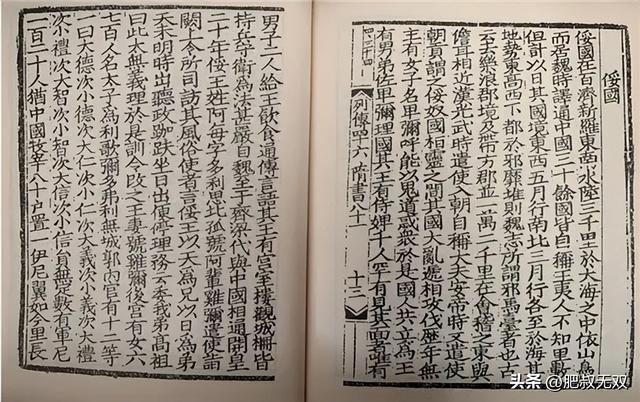 俀國
俀國在百濟新羅東南水陸三千里於大海之中依山島
而居魏時譯通中國三十餘國皆自稱王夷人不知里數
但計以日其國境東西五月行南北三月行各至於海其
地勢東高西下都於邪靡堆則魏志所謂邪馬臺者也古
云去樂浪郡境及帶方郡並一萬二千里在會稽之東與
儋耳相近漢光武時遣使入朝自稱大夫安帝時又遣使
朝貢謂之俀奴國桓靈之間其國大亂遞相攻伐歷年無
主有女子名卑彌呼能以鬼道惑衆於是國人共立為王
有男弟佐卑彌理國其王有侍婢千人罕有見其面者唯有
列傳四十六 隋書八十一
十三
男子二人給王飲食通傳言語其王有宮室樓觀城柵皆
持兵守衛為法甚嚴自魏至于齊梁代與中國相通開皇
二十年俀王姓阿每字多利思比孤號阿輩雞彌遣使詣
闕上令所司訪其風俗使者言俀王以天為兄以日為弟
天未明時出聽政跏趺坐日出便停理務云委我弟高祖
曰此太無義理於是訓令改之王妻號雞彌後宮有女六
七百人名太子為利歌彌多弗利無城郭內官有十二等
一曰大德次小德次大仁次小仁次大義次小義次大禮
次小禮次大智次小智次大信次小信員無定數有軍尼
一百二十人猶中國牧宰八十戶置一伊尼翼如今里長
头条 @肥叔无双